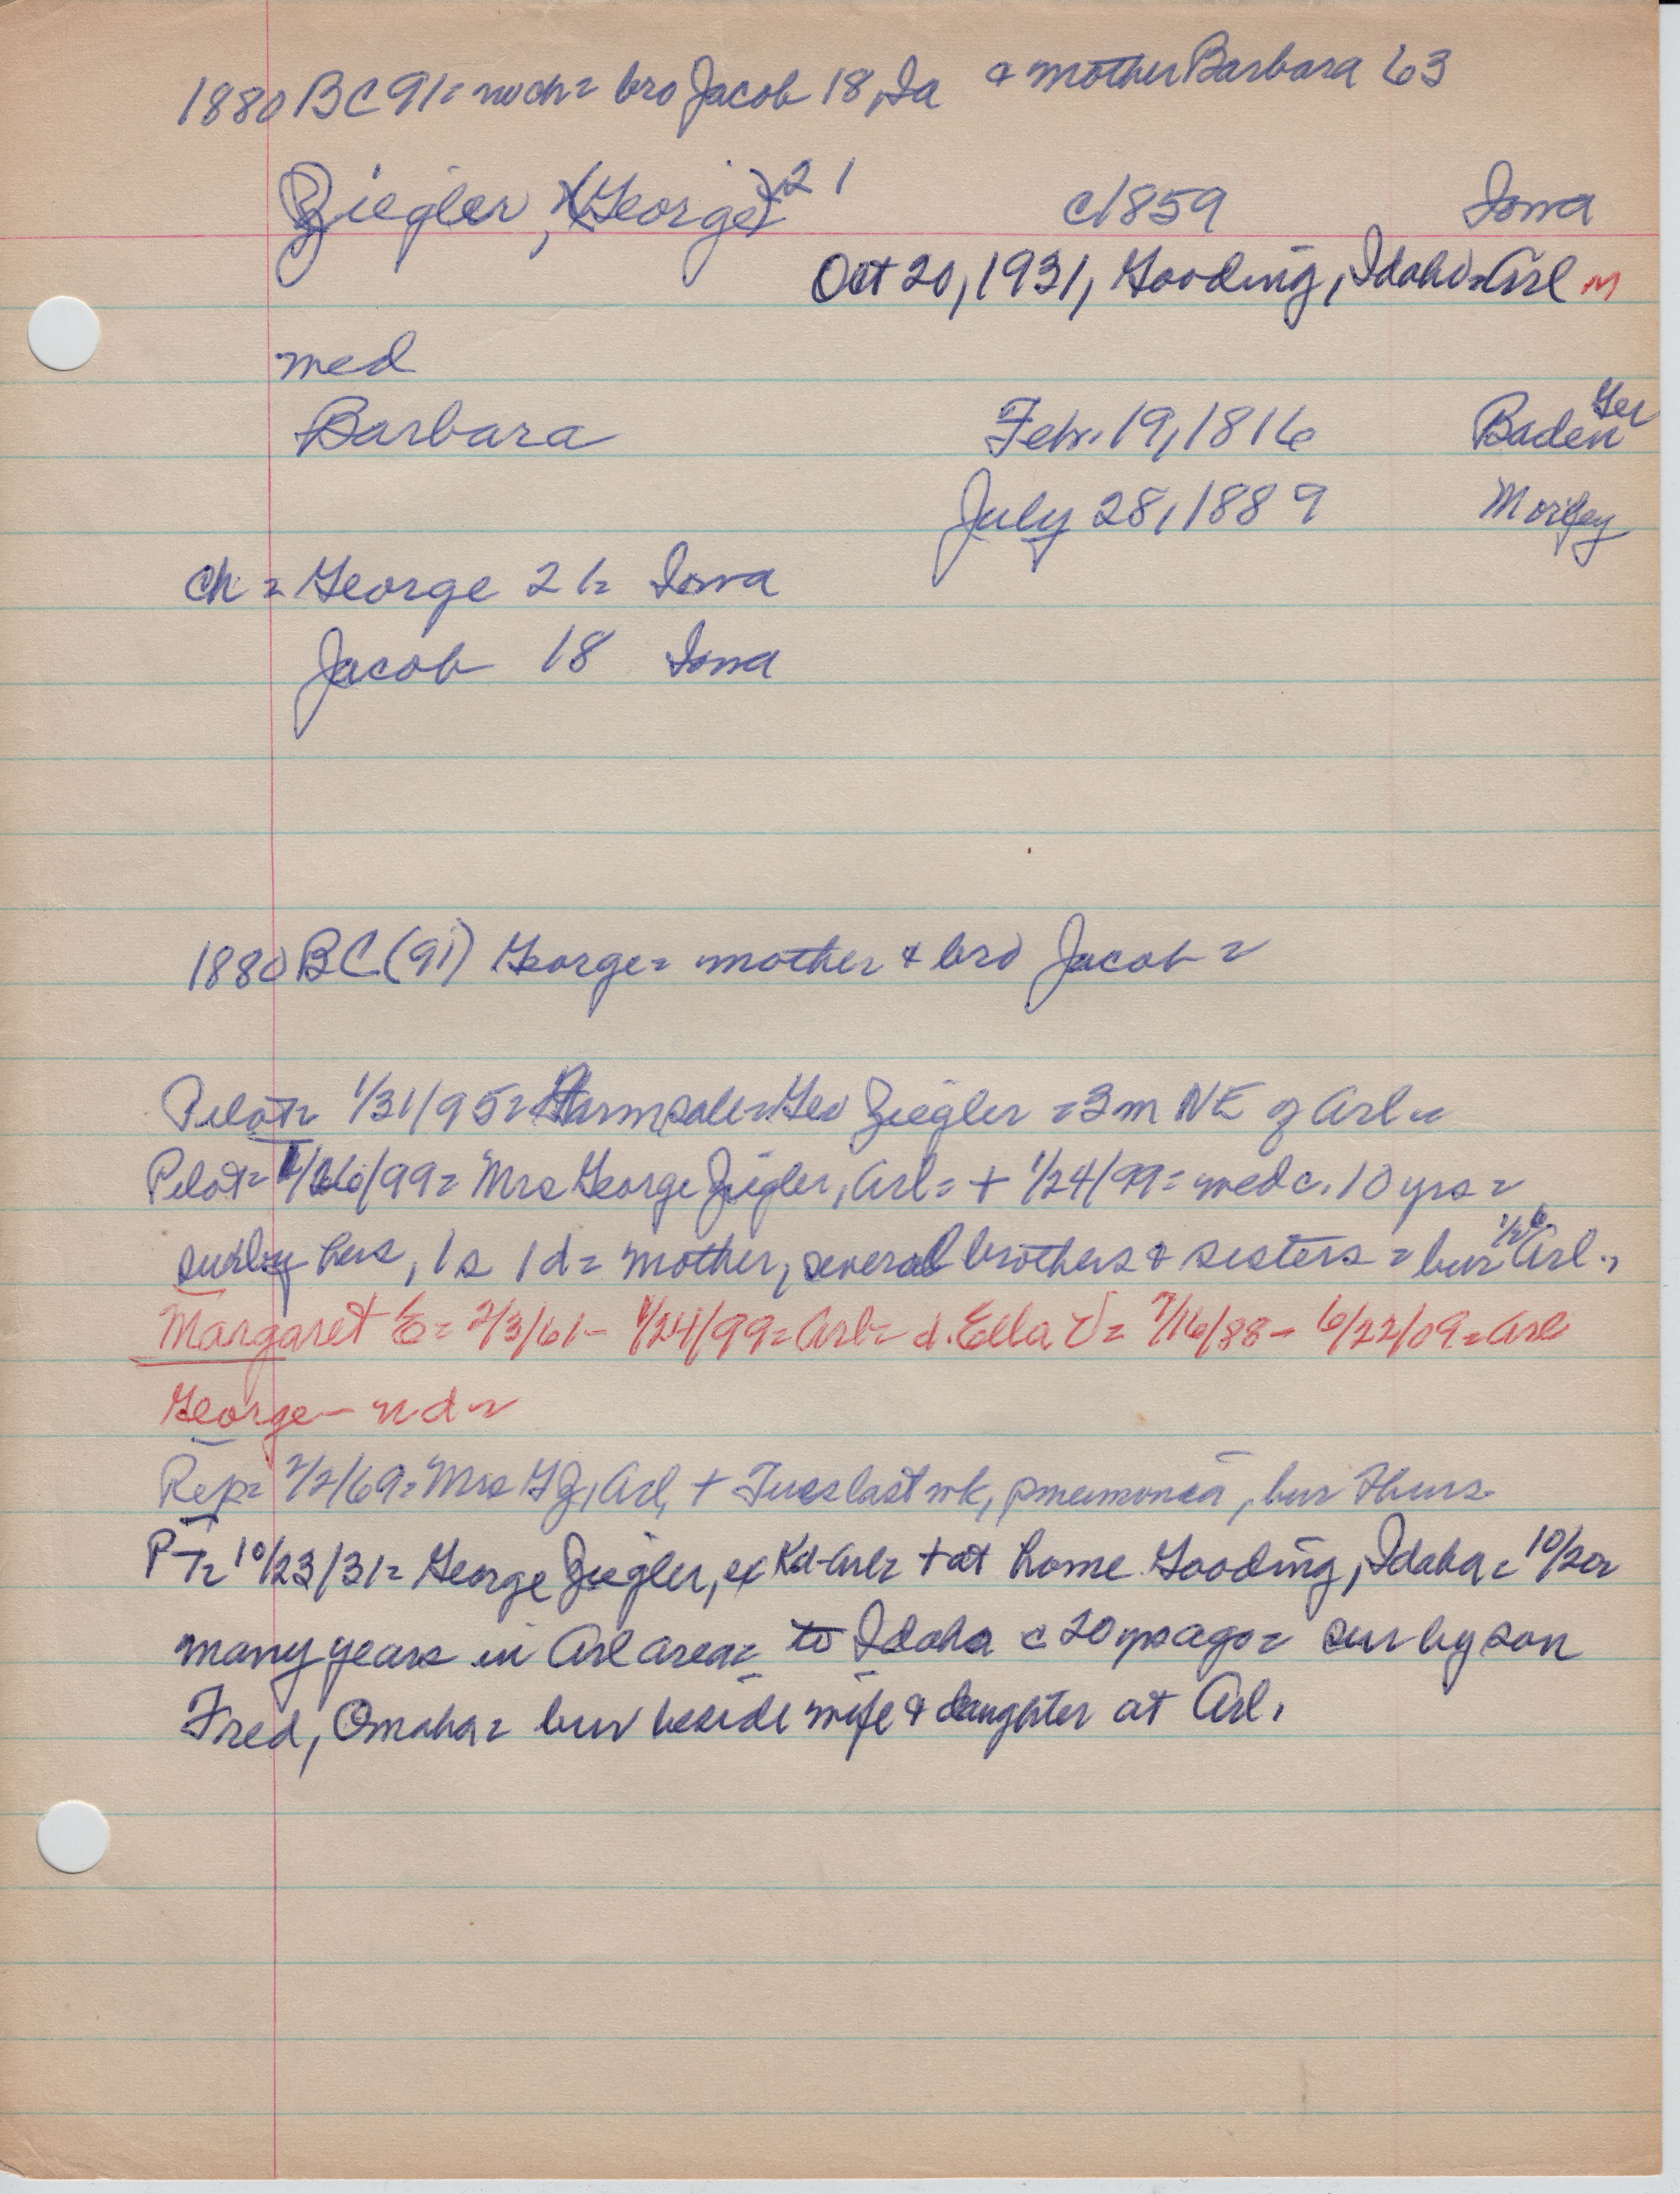 1880 BC 91= no ch= bro Jacob 18, Ia & mother Barbara 63
Ziegler, (George) 21 c1859 Iowa
Oct 20, 1931, Gooding, Idaho=Arl M
med
Barbara Feb. 19, 1816 Baden Ger
July 28, 1889
ch = George 21= Iowa
Jacob 18 Iowa
1880 BC (91) George= mother & bro Jacob =
Pilot= 1/31/95= Farm sale= Geo Ziegler =3 m NE of Arl =
Pilot= 1/26/99= Mrs George Ziegler, Arl= + 1/24/99= med c. 10 yrs =
sur by hus, 1 s 1 d= mother, several brothers & sisters = bur 1/26 Arl.,
Margaret E= 2/3/61- 1/24/99= Arl= d. Ella V= 7/16/88- 6/22/09= Arl
George- nd=
Rep= 2/2/69= Mrs G Z, Arl, + Tues last wk, pneumonia, bur Thurs
PT= 10/23/31= George Ziegler, ex Kd-Arl= + at home Gooding, Idaho = 10/20=
many years in Arl area= to Idaho c 20 yrs ago= sur by son
Fred, Omaha= bur beside wife & daughter at Arl.